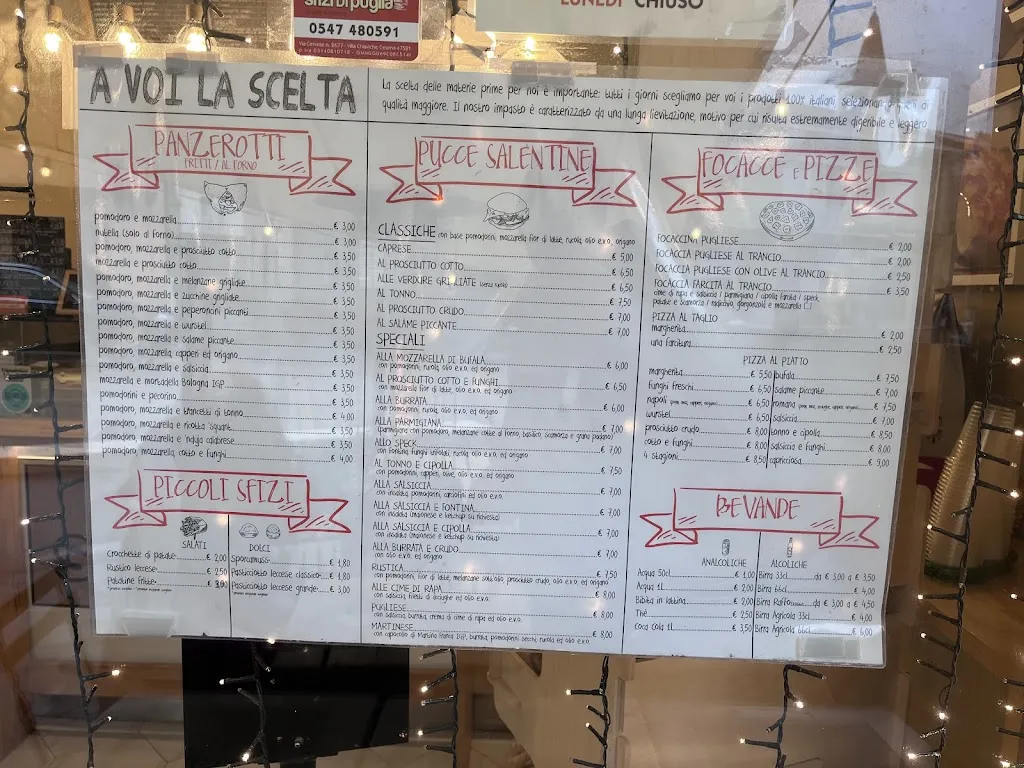 0547 480591
LUNEDI' CHIUSO
A VOI LA SCELTA
La scelta delle materie prime per noi è importante: tutti i giorni scegliamo per voi i prodotti 100% italiani,
qualità maggiore. Il nostro impasto è caratterizzato da una lunga lievitazione, motivo per cui risulta estremamente digeribile e leggero
PANZEROTTI
FRITTI / AL FORNO
pomodoro e mozzarella € 3,00
nutella (solo al forno) € 3,00
pomodoro, mozzarella e prosciutto cotto € 3,50
mozzarella e prosciutto cotto € 3,50
pomodoro, mozzarella e melanzane grigliate € 3,50
pomodoro, mozzarella e zucchine grigliate € 3,50
pomodoro, mozzarella e peperoncini piccanti € 3,50
pomodoro, mozzarella e wurstel € 3,50
pomodoro, mozzarella e salame piccante € 3,50
pomodoro, mozzarella capperi ed origano € 3,50
pomodoro, mozzarella e salsiccia € 3,50
mozzarella e mortadella Bologna IGP € 3,50
pomodorini e pecorino € 3,50
pomodoro, mozzarella e filancetti di tonno € 4,00
pomodoro, mozzarella e ricotta squant € 3,50
pomodoro, mozzarella e 'nduja calabrese € 3,50
pomodoro, mozzarella, cotto e funghi € 4,00
PICCOLI SFIZI
SALATI
Crocchette di patate € 2,00
Rustico leccese € 2,50
Patatine fritte
DOLCI
Sporcamuss € 1,80
Pasticciotto leccese classico € 1,80
Pasticciotto leccese grande € 3,00
PUCCE SALENTINE
CLASSICHE con base pomodorini, mozzarella fior di latte, rucola, olio e.v.o., origano
CAPRESE € 5,00
AL PROSCIUTTO COTTO € 6,50
ALLE VERDURE GRIGLIATE (senza rucola) € 6,50
AL TONNO € 7,50
AL PROSCIUTTO CRUDO € 7,00
AL SALAME PICCANTE € 7,00
SPECIALI
ALLA MOZZARELLA DI BUFALA € 6,00
con pomodorini, rucola, olio e.v.o. ed origano
AL PROSCIUTTO COTTO E FUNGHI € 6,50
con mozzarella fior di latte, olio e.v.o. ed origano
ALLA BURRATA € 6,00
con pomodorini, rucola, olio e.v.o. ed origano
ALLA PARMIGIANA € 7,00
(parmigiana con pomodoro, melanzane cotte al forno, basilico, scamorza e grana padano)
ALLO SPECK € 7,00
con fontina, funghi trifolati, rucola, olio e.v.o. ed origano
AL TONNO E CIPOLLA € 7,50
con pomodorini, capperi, olive, olio e.v.o. ed origano
ALLA SALSICCIA € 7,00
con insalata, pomodorini, carciofini ed olio e.v.o.
ALLA SALSICCIA E FONTINA € 7,00
con insalata (maionese e ketchup su richiesta)
ALLA SALSICCIA E CIPOLLA € 7,00
con insalata (maionese e ketchup su richiesta)
ALLA BURRATA E CRUDO € 7,00
con olio e.v.o. ed origano
RUSTICA € 7,50
con pomodorini, fior di latte, melanzane sott olio, prosciutto crudo, olio e.v.o. ed origano
ALLE CIME DI RAPA € 8,00
con salsiccia, filetti di acciughe ed olio e.v.o.
PUGLIESE € 8,00
con salsiccia, burrata, crema di cime di rapa ed olio e.v.o.
MARTINESE € 8,00
con capocollo di Martina Franca IGP, burrata, pomodorini secchi, rucola ed olio e.v.o.
FOCACCE E PIZZE
FOCACCINA PUGLIESE € 2,00
FOCACCIA PUGLIESE AL TRANCIO € 2,00
FOCACCIA PUGLIESE CON OLIVE AL TRANCIO € 2,50
FOCACCIA FARCITA AL TRANCIO € 3,50
cime di rapa e salsiccia / parmigiana / cipolla farcita / speck,
patate e scamorza / radicchio, gorgonzola e mozzarella (...)
PIZZA AL TAGLIO
margherita € 2,00
una farcitura € 2,50
PIZZA AL PIATTO
margherita € 5,50
funghi freschi € 6,50
napoli € 6,50
wurstel € 6,50
prosciutto crudo € 8,00
cotto e funghi € 8,00
4 stagioni € 8,50
bufala € 7,50
salame piccante € 7,00
romana € 7,50
salsiccia € 7,00
tonno e cipolla € 8,50
salsiccia e funghi € 8,00
capricciosa € 9,00
BEVANDE
ANALCOLICHE
Acqua 50cl € 1,00
Acqua 1L € 2,00
Bibita in lattina € 2,00
Thè € 2,50
Coca Cola 1L € 3,50
ALCOLICHE
Birra 33cl da € 3,00 a € 3,50
Birra 66cl € 4,00
Birra Raffo da € 3,00 a € 4,50
Birra Agricola 33cl € 4,00
Birra Agricola 66cl € 6,00